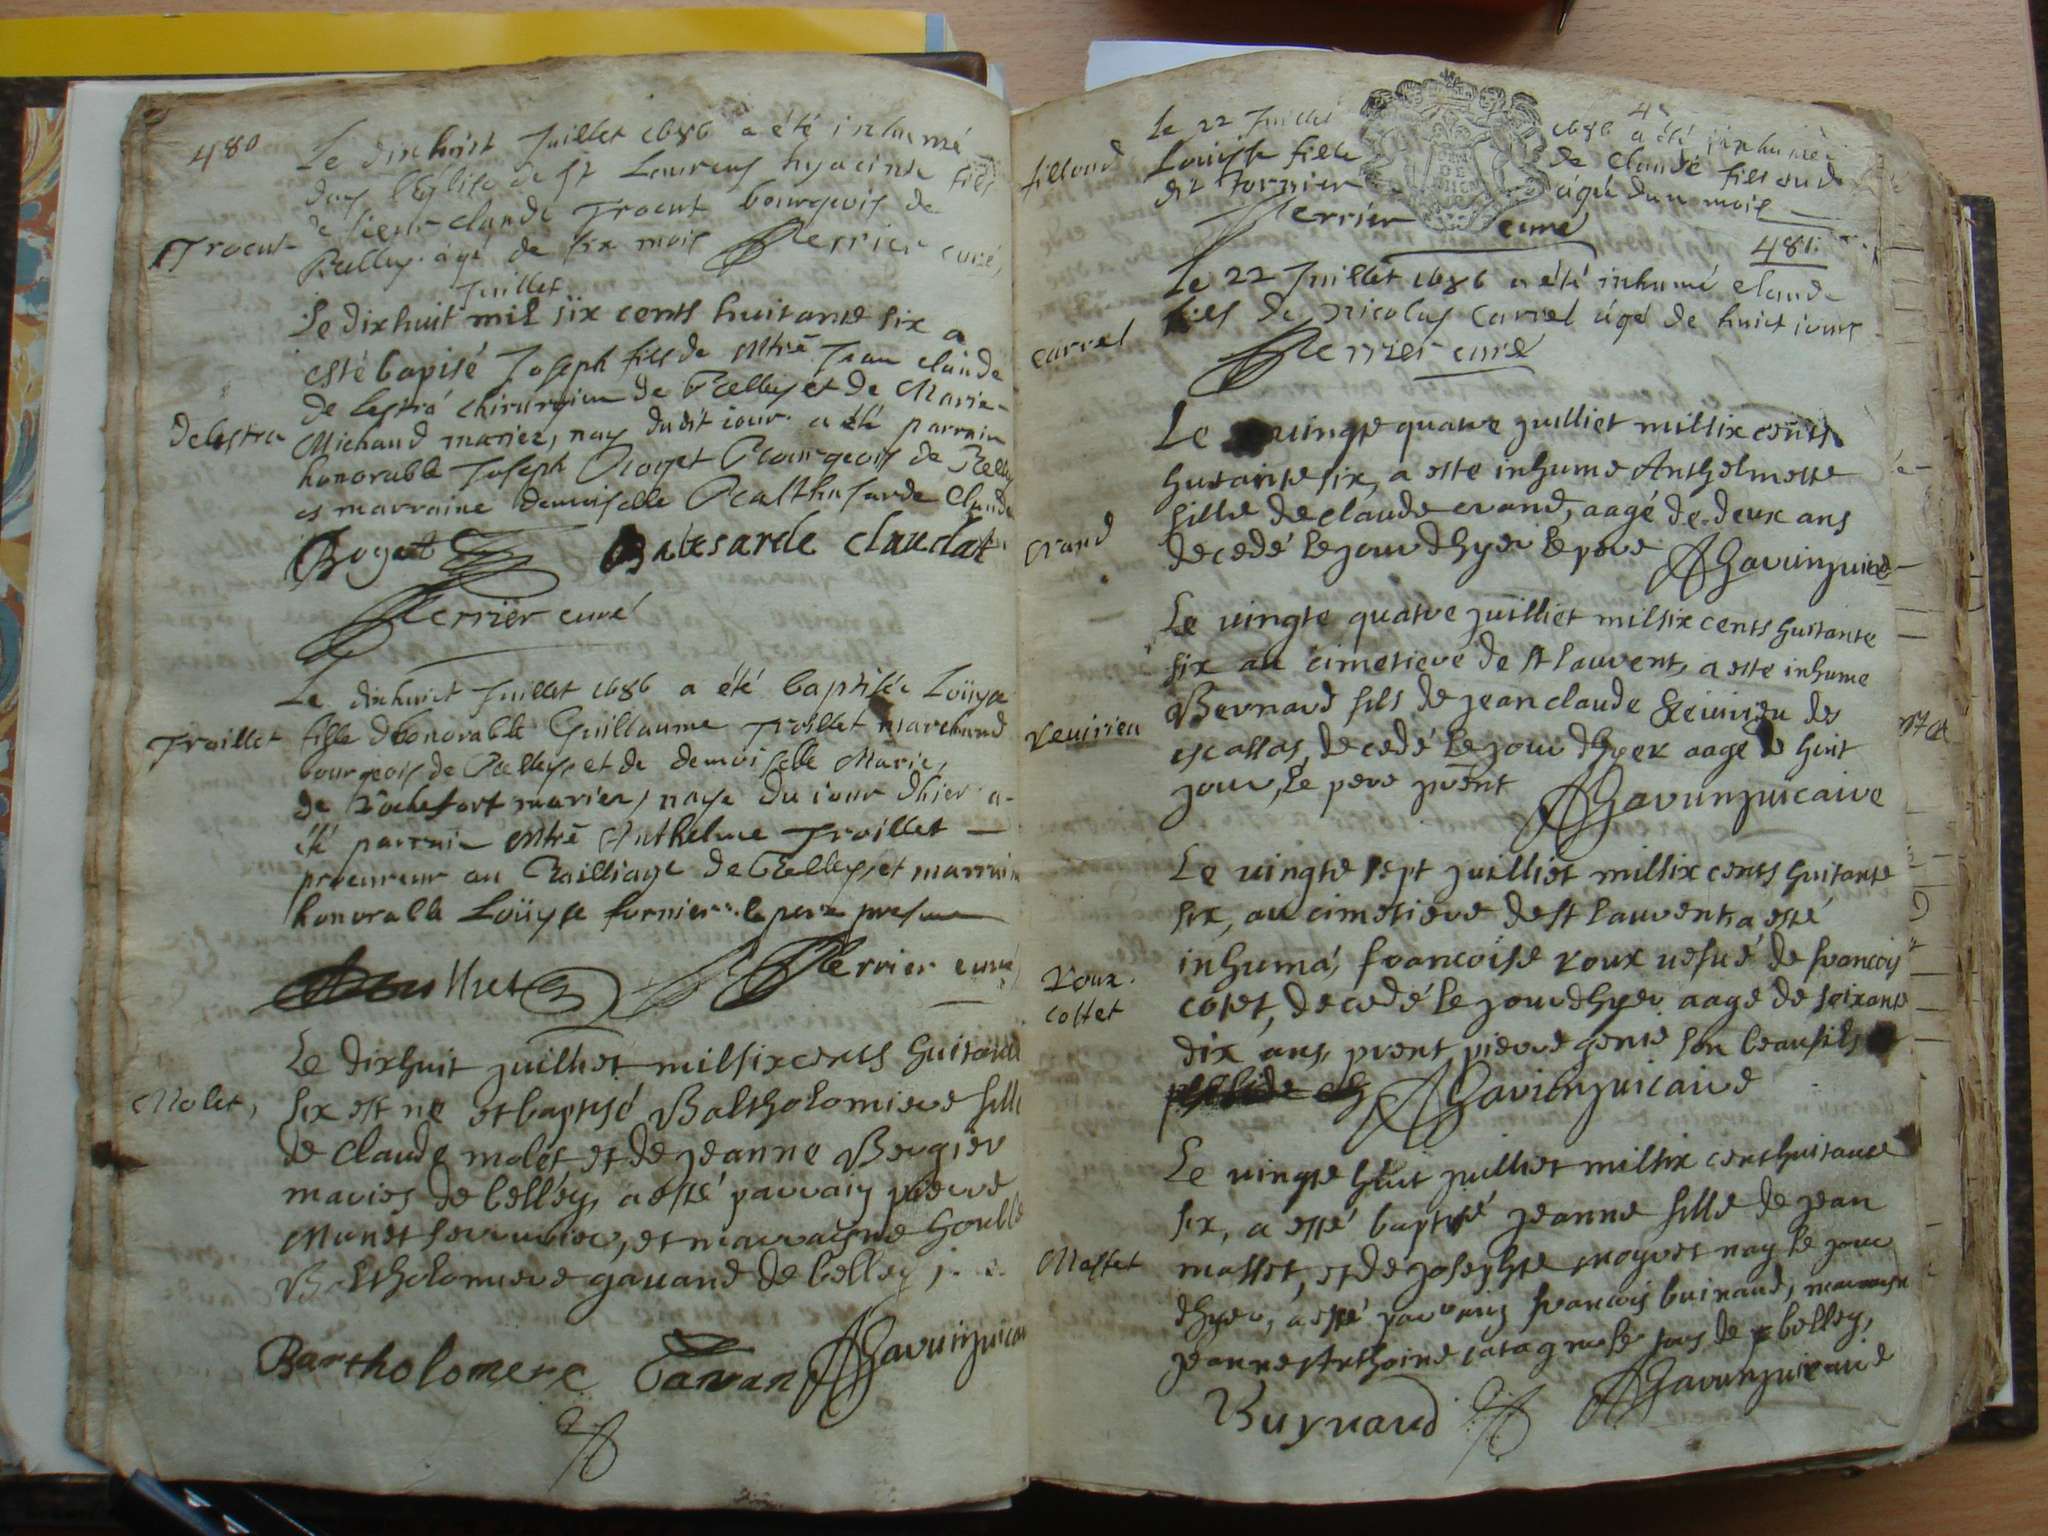 480
Le dixhuict Juillet 1686 a été inhumé
dans l'Eglise de St Laurens hyacinte fils
de sieur claude Trocut bourgeois de
Trocut
Belley agé de six mois Perrier curé,
Juillet
Le dixhuit mil six cents huitante six a
esté bapisé Joseph fils de Mtre Jean claude
de lestra chirurgien de Belley et de Marie
Delestra
Michaud mariez, nay dudit iour a été parrain
honorable Joseph Boget Bourgeois de Belley
et marraine demoiselle Balthesarde Claude
Boget Balesarde claudat
Perrier curé
Le dixhuict Juillet 1686 a été baptisée Loüyse
Troillet
fille d'honorable Guillaume Troillet marchand
bourgeois de Belley, et de demoiselle Marie
de Rochefort mariez, naye du iour d'hier a
été parrain Mtre Anthelme Troillet
procureur au Bailliage de Belley, et marraine
honorable Loüyse fornier le pere
Perrier curé
Le dixhuit juilliet milsixcents huitante
Molet,
six est ne et baptisé Baltholomiere fille
de claude molet, et de jeanne Bergier
maries de belley, a esté parrain pierre
Munet serrurier, et marraine
Baltholomiere gavand de belley
Bartholomere Gavan
fillioud
Le 22 Juillet 1686 a été inhumée
Louyse fille de Claude filioud
dit Fornier agé dun mois
Perrier curé
481.
Le 22 Juillet 1686 a été inhumé claude
carrel
fils de Nicolas Carrel agé de huict iours
Perrier curé
Le vingte quatre juilliet milsix cents
huitante six, a este inhume Anthelmette
fille de claude crand, aagé de deux ans
crand
decedé le jour dhyer le pere
Le vingte quatre juilliet milsix cents huitante
six au cimetiere de st laurent, a este inhume
Bernard fils de jean claude Reuirieu des
Reuirieu
escassas, decedé le jour dhyer aage de huit
jour, le pere prent
Le vingte sept juilliet milsix cents huitante
six, au cimetiere de st laurent a esté
inhumá, francoise roux vefue de francois
roux.
cottet
cotet, decedé le jour dhyer aage de soixante
dix ans, prent pierre genté son beaufils
Le vingte huit juilliet milsix cent huitante
six, a esté baptisé jeanne fille de jean
Masset
masset, et de josephte moyret nay le jour
dhyer, a esté parrain francois buinaud, marraine
jeanne Anthoine de belley,
Buynaud